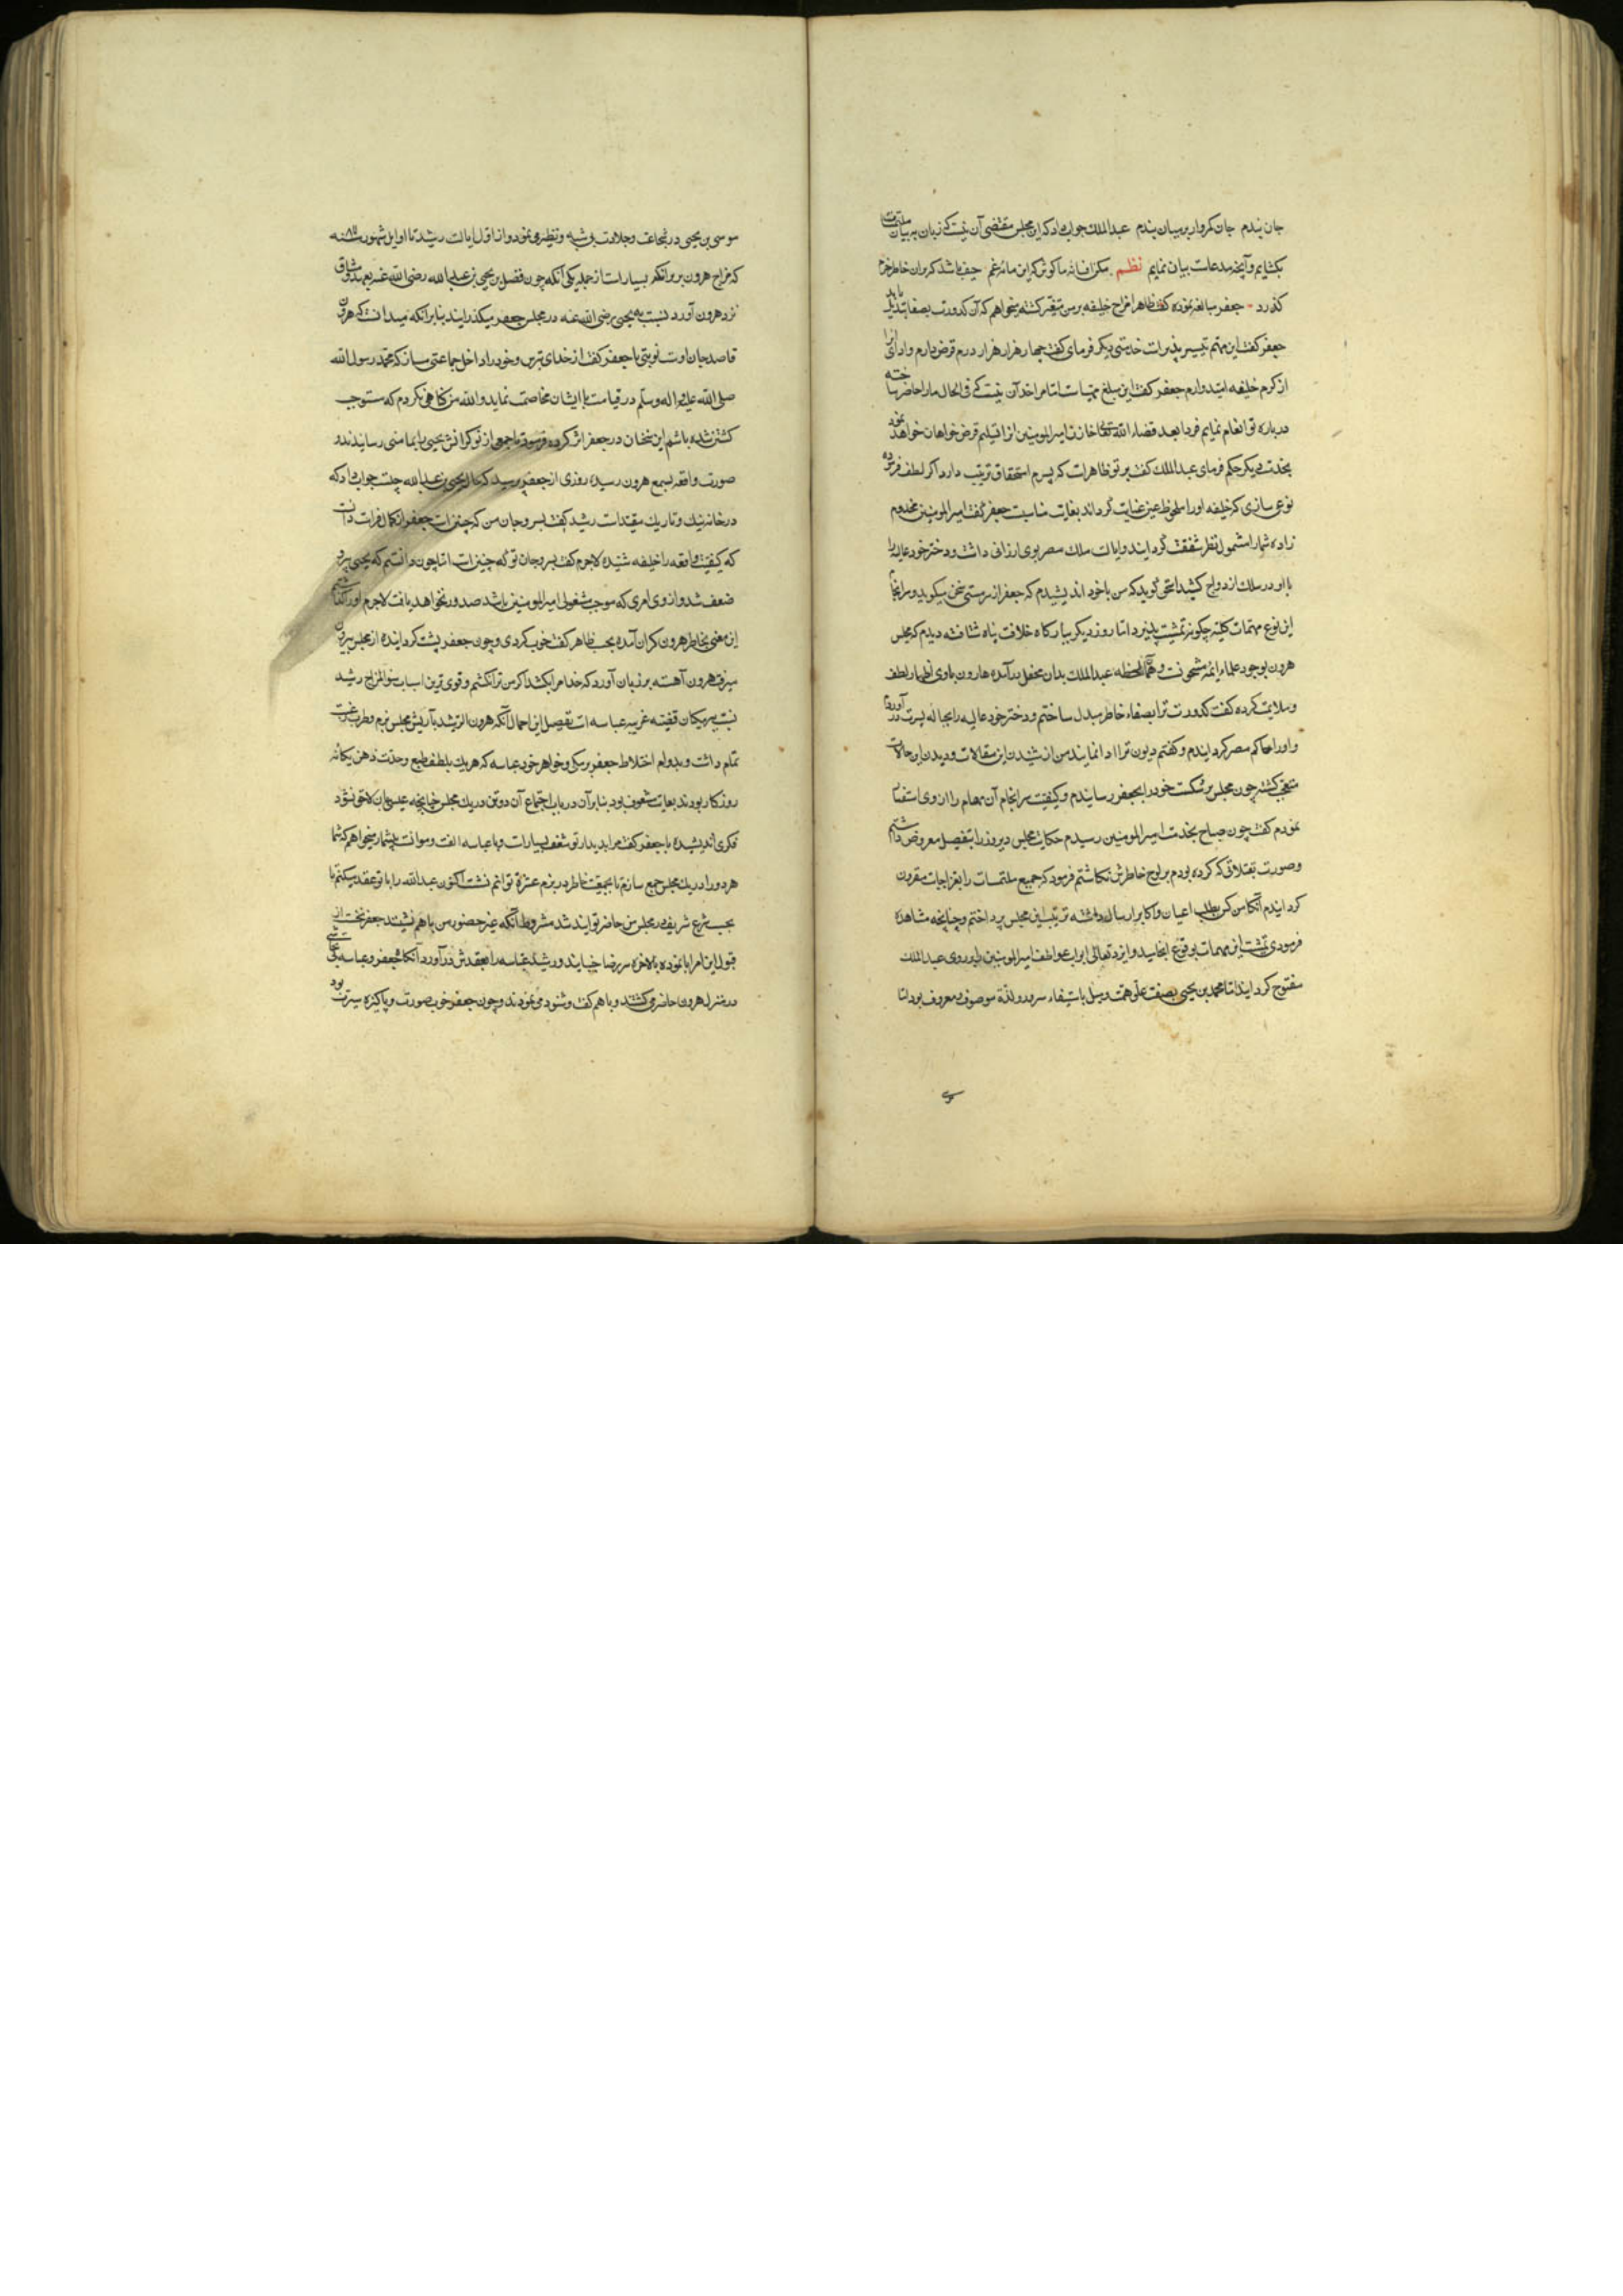 جان بندم جان کمروار بر میان بندم عبدالملک جواب داد که این مجلس مقتضی آن نیست که زبان به بیان ملتمسات
بکشایم و آنچه مدعاست بیان نمایم نظم مکن افسانه ما کوش که این مایه غم حیف باشد که بران خاطر خرم
کذرد جعفر مبالغه نموده کفت ظاهرا مزاج خلیفه بر من متغیر کشته میخواهم که آن کدورت بصفا تبدیل یابد
جعفر کفت این مهم تیسیر پذیر است خدمتی دیکر فرمای کفت چهار هزار هزار درم قرض دارم و ادای آنرا
از کرم خلیفه امیدوارم جعفر کفت این مبلغ مهیاست اما مرا حد آن نیست که فی الحال مال را حاضر ساخته
درباره تو انعام نمایم فردا بعد قضاء الله تعالی خازن امیرالمومنین از قبلم قرض خواهان خواهد نمود
بخدمت دیکر حکم فرمای عبدالملک کفت بر تو ظاهر است که پسرم استحقاق تربیت دارد اکر لطف فرموده
نوعی سازی که خلیفه او را ملحوظ عین عنایت کرداند بغایت مناسبت جعفر کفت امیرالمومنین مخدوم
زاده شما را مشمول نظر شفقت کردانید و ایالت ملک مصر بوی ارزانی داشت و دختر خود عالیه را
با او در سلک ازدواج کشید کوید که من باخود اندیشیدم که جعفر از سر مستی سخن میکوید و سرانجام
این نوع مهمات کلیه چکونه تمشیت پذیرد اما روز دیکر ببارکاه خلافت پناه شتافته دیدم که مجلس
هرون بوجود علماء و ایمه مشحونست و همان لحظه عبدالملک بدان محفل درآمده هارون باوی اظهار لطف
و ملایمت کرده کفت کدورت ترا بصفاء خاطر مبدل ساختم و دختر خود عالیه را بحباله پسرت درآوردم
و او را حاکم مصر کردانیدم و کفتم دیون ترا ادا نمایند من از شنیدن این مقالات و دیدن این حالات
متعجب کشته چون مجلس برشکست خود را بجعفر رسانیدم و کیفیت سرانجام آن مهام را از وی استفسار
نمودم کفت چون صباح بخدمت امیرالمومنین رسیدم حکایت مجلس دیروز را بتفصیل معروض داشتم
و صورت که کرده بودم بر لوح خاطرش نکاشتم فرمود که جمیع ملتمسات را مقرون
کردانیدم آنکاه من کس بطلب اعیان و اکابر ارسال داشته ترتیب این مجلس پرداختم و چنانچه مشاهده
فرمودی تمشیت این مهمات بوقوع انجامید و ایزد تعالی ابواب عواطف امیرالمومنین را بر روی عبدالملک
مفتوح کردانید اما محمد بن یحیی بصفت علو همت و میل باستیفاء سرور و لذة موصوف و معروف بود اما
موسی بن یحیی در شجاعت و جلادت بی شبه و نظیر می نمود و از اول ایالت رشید تا اوایل شهور سنه
که مزاج هرون بر برامکه بسیار است از جمله یکی آنکه چون فضل بن یحیی بن عبدالله رضی الله عنه
نزد هرون آورد نسبت به یحیی رضی الله عنه در مجلس جعفر میکذرانید بنابر آنکه میدانست که هرون
قاصد جان اوست نوبتی با جعفر کفت از خدای بترس و خود را داخل جماعتی مساز که محمد رسول الله
صلی الله علیه و آله و سلم در قیامت با ایشان مخاصمت نماید والله من کناهی نکردم که مستوجب
کشتن شده باشم این سخنان در جعفر اثر کرده فرمود تا جمعی از نوکرانش یحیی را بمامنی رسانیدند و
صورت واقعه بسمع هرون رسیده روزی از جعفر پرسید که حال یحیی بن عبدالله چیست جواب داد که
در خانه تنک و تاریک مقید است رشید کفت بسر و جان من که چنین است جعفر از کمال فراست دانست
که کیفیت واقعه را خلیفه شنیده لاجرم کفت بسر و جان تو که چنین است اما چون دانستم که یحیی پیر و
ضعیف شد و از وی امری که موجب مشغولی امیرالمومنین باشد صدور نخواهد یافت لاجرم او را کذاشتم
این معنی بخاطر هرون کران آمده بحسب ظاهر کفت خوب کردی و چون جعفر پشت کردانیده از مجلس بیرون
میرفت هرون آهسته بر زبان آورد که خدا مرا بکشد اکر من ترا نکشم و قوی ترین اسباب سوءالمزاج رشید
نسبت ببرمکیان قضیه غریبه عباسه است تفصیل این اجمال آنکه هرون الرشید بآرایش مجلس بزم و طرب رغبت
تمام داشت و بدوام اختلاط جعفر برمکی و خواهر خود عباسه که هر یک بلطف طبع و حدت ذهن یکانه
روزکار بودند بغایت مشعوف بود بنابرآن در باب اجتماع آن دو تن در یک مجلس چنانچه عیبی بان لاحق نشود
فکری اندیشیده با جعفر کفت مرا بدیدار تو شعف بسیار است و با عباسه الفت و موانست بیشمار میخواهم که شما
هر دو را در یک مجلس جمع سازم تا بجمعیت خاطر در بزم عشرة توانم نشست اکنون عباسه را با تو عقد میکنم تا
بحسب شرع شریف در مجلس من حاضر توانید شد مشروط آنکه غیر حضور من باهم ننشینید جعفر نخست از
قبول این امر ابا نموده بالاخره سر رضا جنبانید و رشید عباسه را بعقدش درآورد آنکاه جعفر و عباسه
در منزل هرون حاضر می کشتند و باهم کفت و شنود می نمودند و چون جعفر خوب صورت و پاکیزه سیرت بود